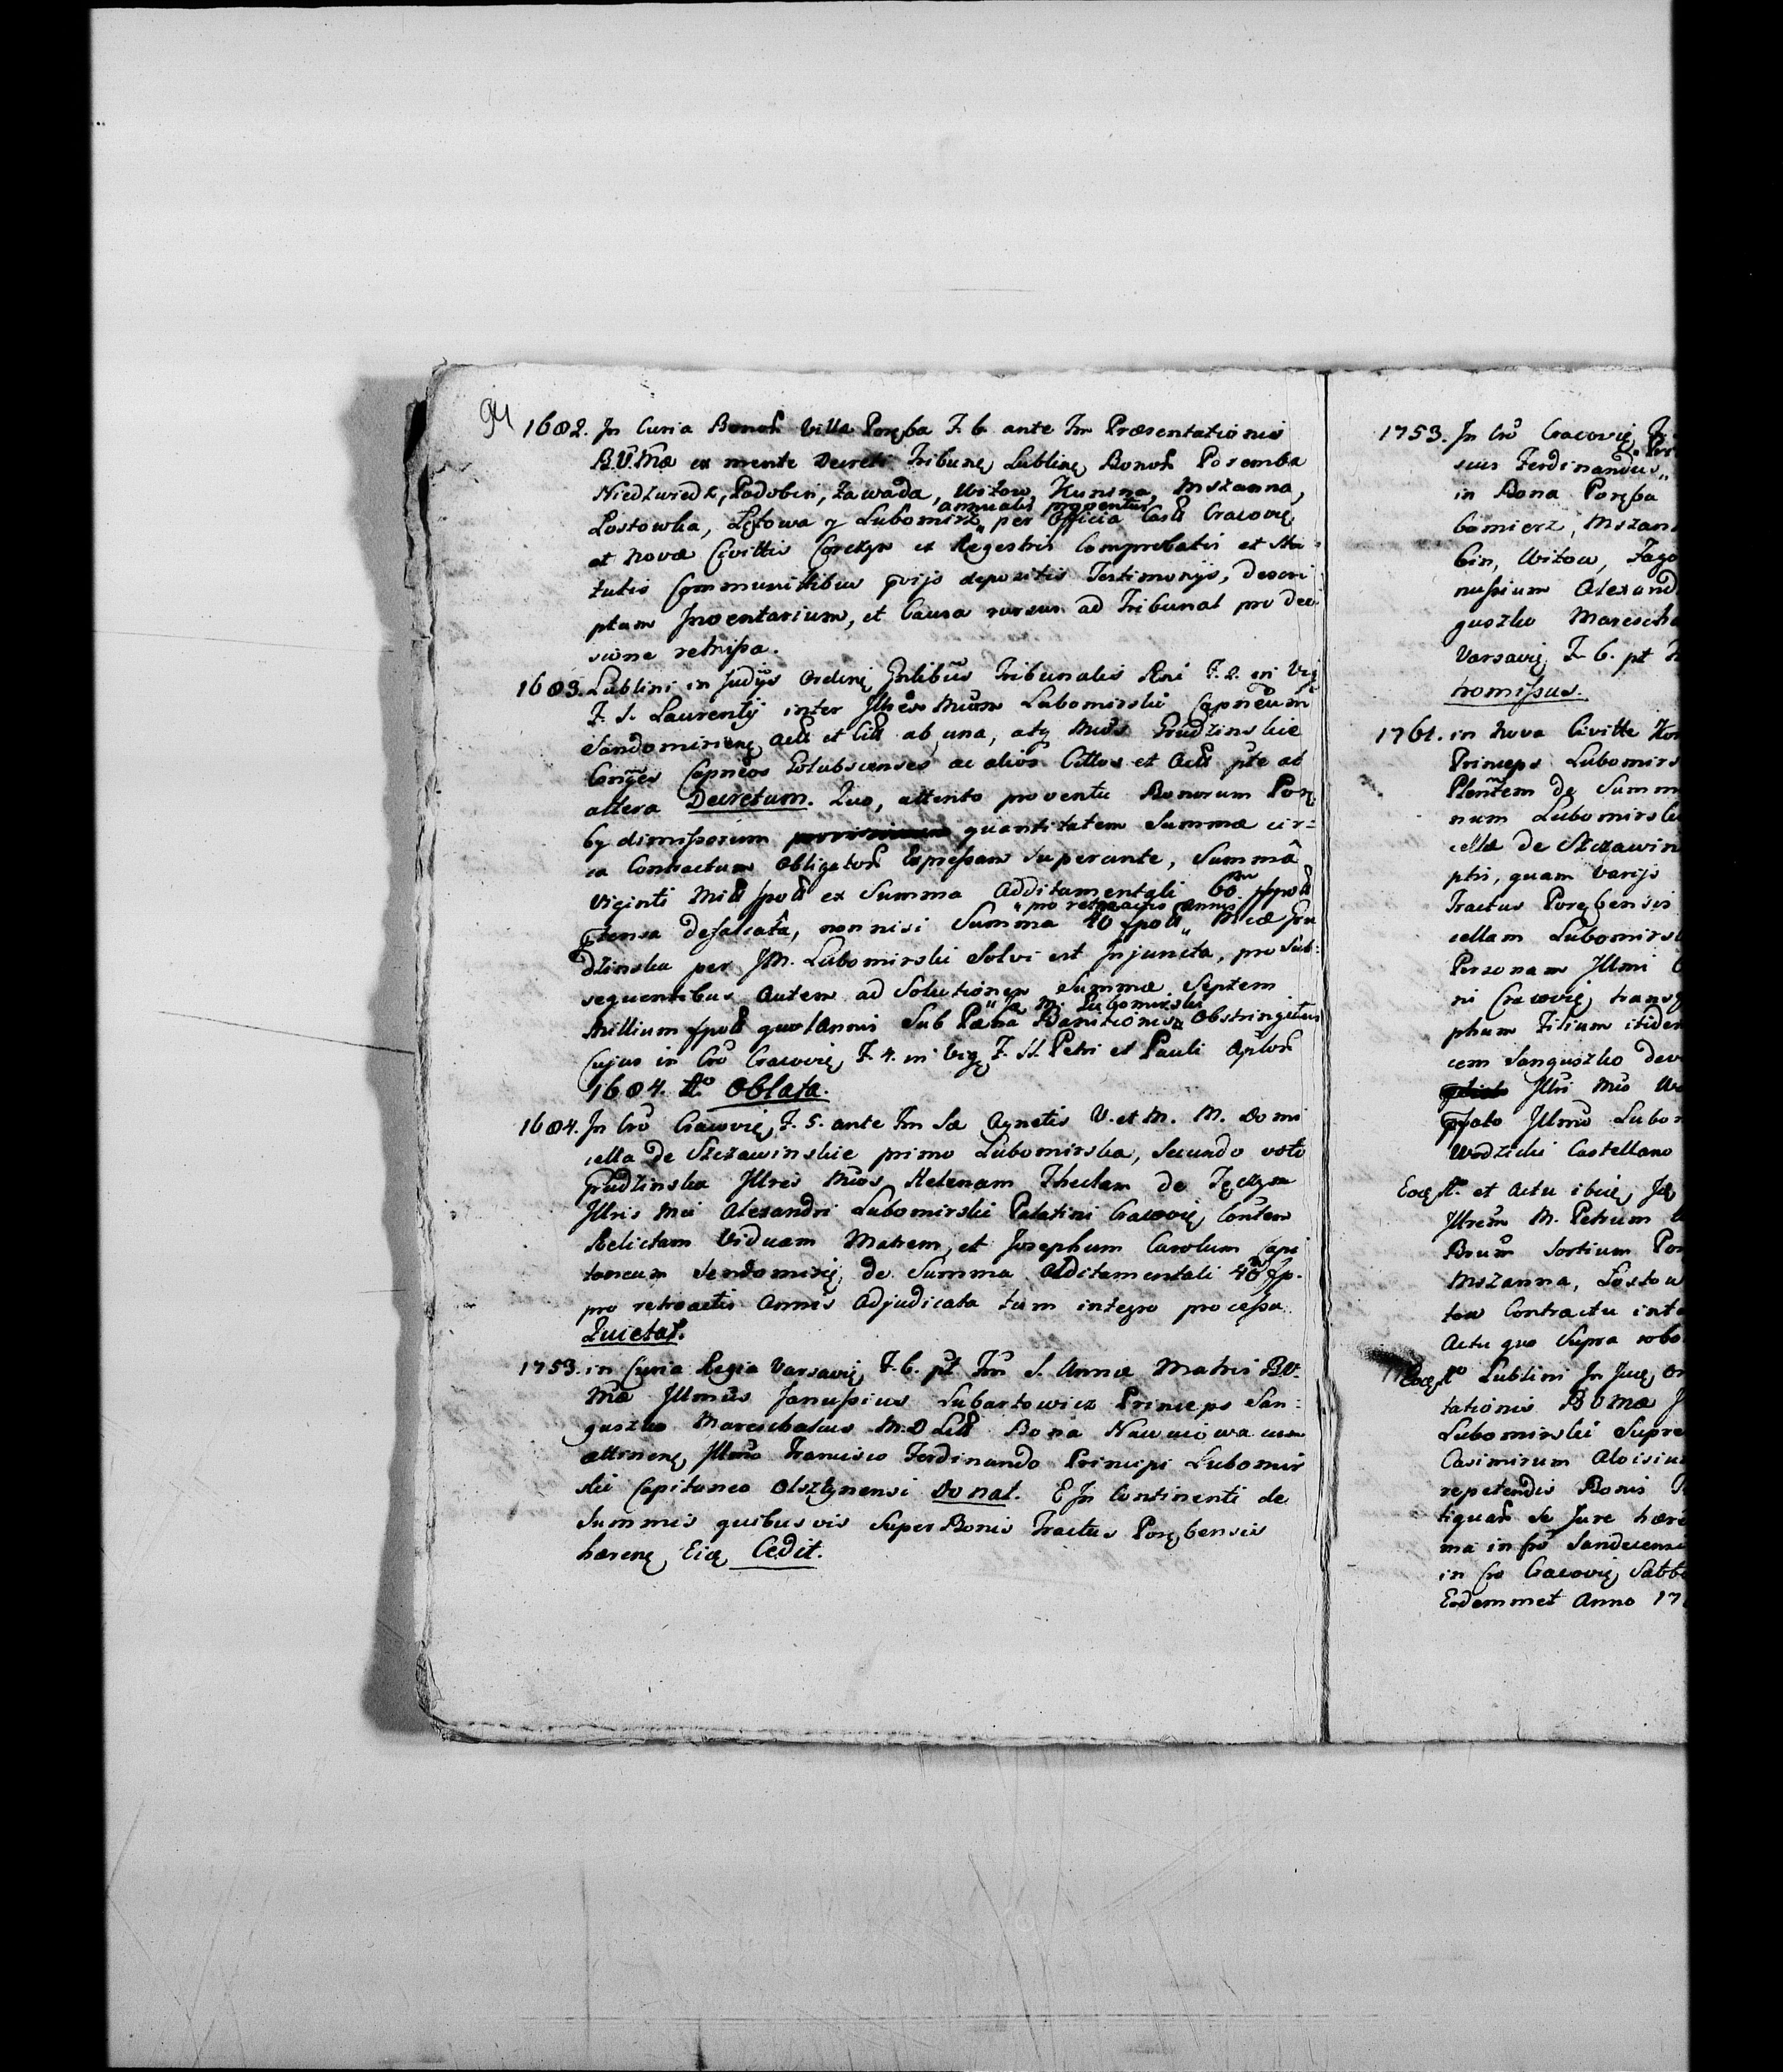 94
1682. In Curia Bonor Villa Poręba F. 6. ante Fm Præsentationis
B.V.Mæ ex mente Decreti Tribunę Lublinę Bonor Poremba
Niedzwiedz, Podobin, Zawada, Witow, Hunina, Mszanna,
annualis proventus
Lostowka, Lętowa y Lubomirz „ per Officia Castr Cracovię
et Novæ Civittis Korczyn ex Regestris Comprobatis et Sta-
tutis Communittibus depositis Testimonijs, descri
ptum Inventarium, et Causa rursus ad Tribunal pro deci
sione remissa.
1683. Lublini in Judijs Ordinę Gnlibus Tribunalis Rni F. 2. in Vig
F. S. Laurentij inter Illres Mcum Lubomirski Capneum
Sandomirienę ab una, atq Mcos Grudzinskie
Conges Capneos Golubscenses ac alios Cittos et pte ab
altera Decretum. Quo, attento proventu Bonorum Porę
by dimissorum quantitatem Summæ cir=
ca Contractum Obligator Expressam superante, Summâ
Viginti Mill fpoll ex Summa Additamentali 60m fpoll
„pro retroactis annis
prensa defalcatâ, nonnisi Summa 40 fpoll „ Mcæ Gru
dzinska per JM. Lubomirski Solvi est Injuncta, pro Sub=
sequentibus autem ad Solutionem Summæ Septem
„ M. Lubomirski
Millium fpoll quotannis Sub Pæna Banitionis „ Obstringitur
Cujus in Cro Cracovię F. 4. in Vig F. SS. Petri et Pauli Aplor
1684. Ao Oblata.
1684. In Cro Cracovię F. 5. ante Fm Sæ Agnetis V. et M. M. Domi
cella de Szczawinskie primo Lubomirska, Secundo voto
Grudzinska Illres Mcos Helenam Theclam de Tęczyn
Illris Mci Alexandri Lubomirski Palatini Cracovię Contem
Relictam Viduam Matrem, et Josephum Carolum Capi
taneum Sendomirię de Summa Additamentali 40m fp.
pro retroactis Annis Adjudicata tum integro processu
Quietat.
1753. in Curia Regia Varsavię F. 6. pt Fm S. Annæ Matris BV.
Mæ Illmus Janussius Lubartowicz Princeps San=
guszko Mareschalcus M. D. Litt Bona Nawoiowa cum
attinenę Illmo Francisco Ferdinando Principi Lubomir
ski Capitaneo Olsztynensi Donat. E In Continenti de
Summis quibusvis Super Bonis Tractus Porębensis
hærenę Eię Cedit.
1753. In Cro Cracovię
scus Ferdinandus „
in Bona Poręba
bomierz, Mszan
bin, Witow, Zago
nussium Alexand
guszko Marescha
Varsavię F. 6. pt
tromissus.
1761. in Nova Civitte Kor
Princeps Lubomirs
Plentem de Summ
num Lubomirsk
cella de Szczawin
ptis, quam Varijs
Tractus Porębensis
cellam Lubomirs
Personam Illmi
ni Cracovię trans
phum Filium itidem
cem Sanguszko dev
Illri Mco Wo
pfato Illmo Lubo
Wodzicki Castellano
Eoę Ao et Actu ibię Ję
Illrem M. Petrum
Brum Sortium Por
Mszanna, Lostow
tow Contractu int
Actu quo Supra robo
Eoę Ao Lublini In Juę Or
tationis BVMæ
Lubomirski Supre
Casimirum Aloisiu
repetendis Bonis
tiquar se Jure hære
ma in fro Sandecensi
in Cro Cracovię Sabb
Eodemmet Anno 17